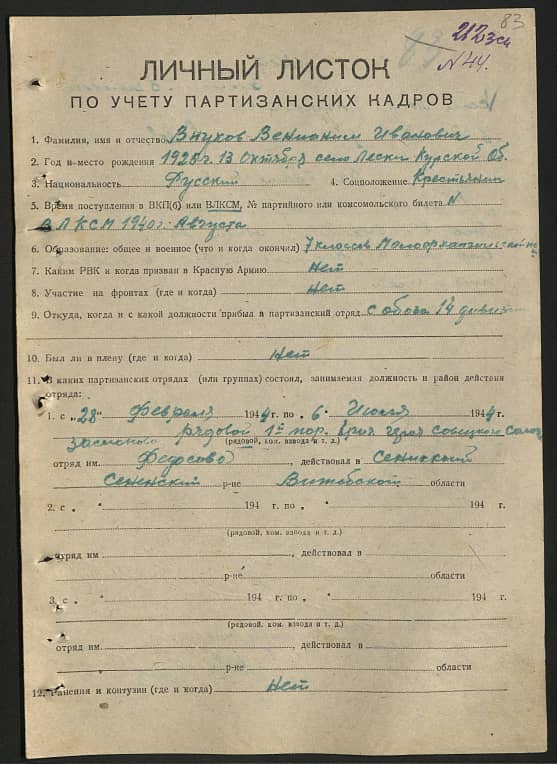 83
212зсп
N 44.
ЛИЧНЫЙ ЛИСТОК
ПО УЧЕТУ ПАРТИЗАНСКИХ КАДРОВ
1. Фамилия, имя и отчество Внуков Вениамин Иванович
2. Год и место рождения 1926 г. 13 Октября село Пески Курской Об.
3. Национальность Русский 4. Соцположение Крестьянин
5. Время поступления в ВКП(б) или ВЛКСМ, № партийного или комсомольского билета N
ВЛКСМ 1940 г. Августа
6. Образование: общее и военное (что и когда окончил) 7 классов
7. Каким РВК и когда призван в Красную Армию Нет
8. Участие на фронтах (где и когда) Нет
9. Откуда, когда и с какой должности прибыл в партизанский отряд с обоза 14 дивиз
10. Был ли в плену (где и когда) Нет
11. В каких партизанских отрядах (или группах) состоял, занимаемая должность и район действия
отряда:
1. с „28" Февраля 1944 г. по „6" Июля 1944 г.
рядовой 1й героя советского союза
(рядовой, ком. взвода и т. д.)
отряд им Федосово, действовал в Сенинский
Сененский р-не Витебской области
2. с „ " 194 г. по „ " 194 г.
(рядовой, ком. взвода и т. д.)
отряд им , действовал в
р-не области
3. с „ " 194 г. по „ " 194 г.
(рядовой, ком. взвода и т. д.)
отряд им. , действовал в
р-не области
12. Ранения и контузии (где и когда) Нет